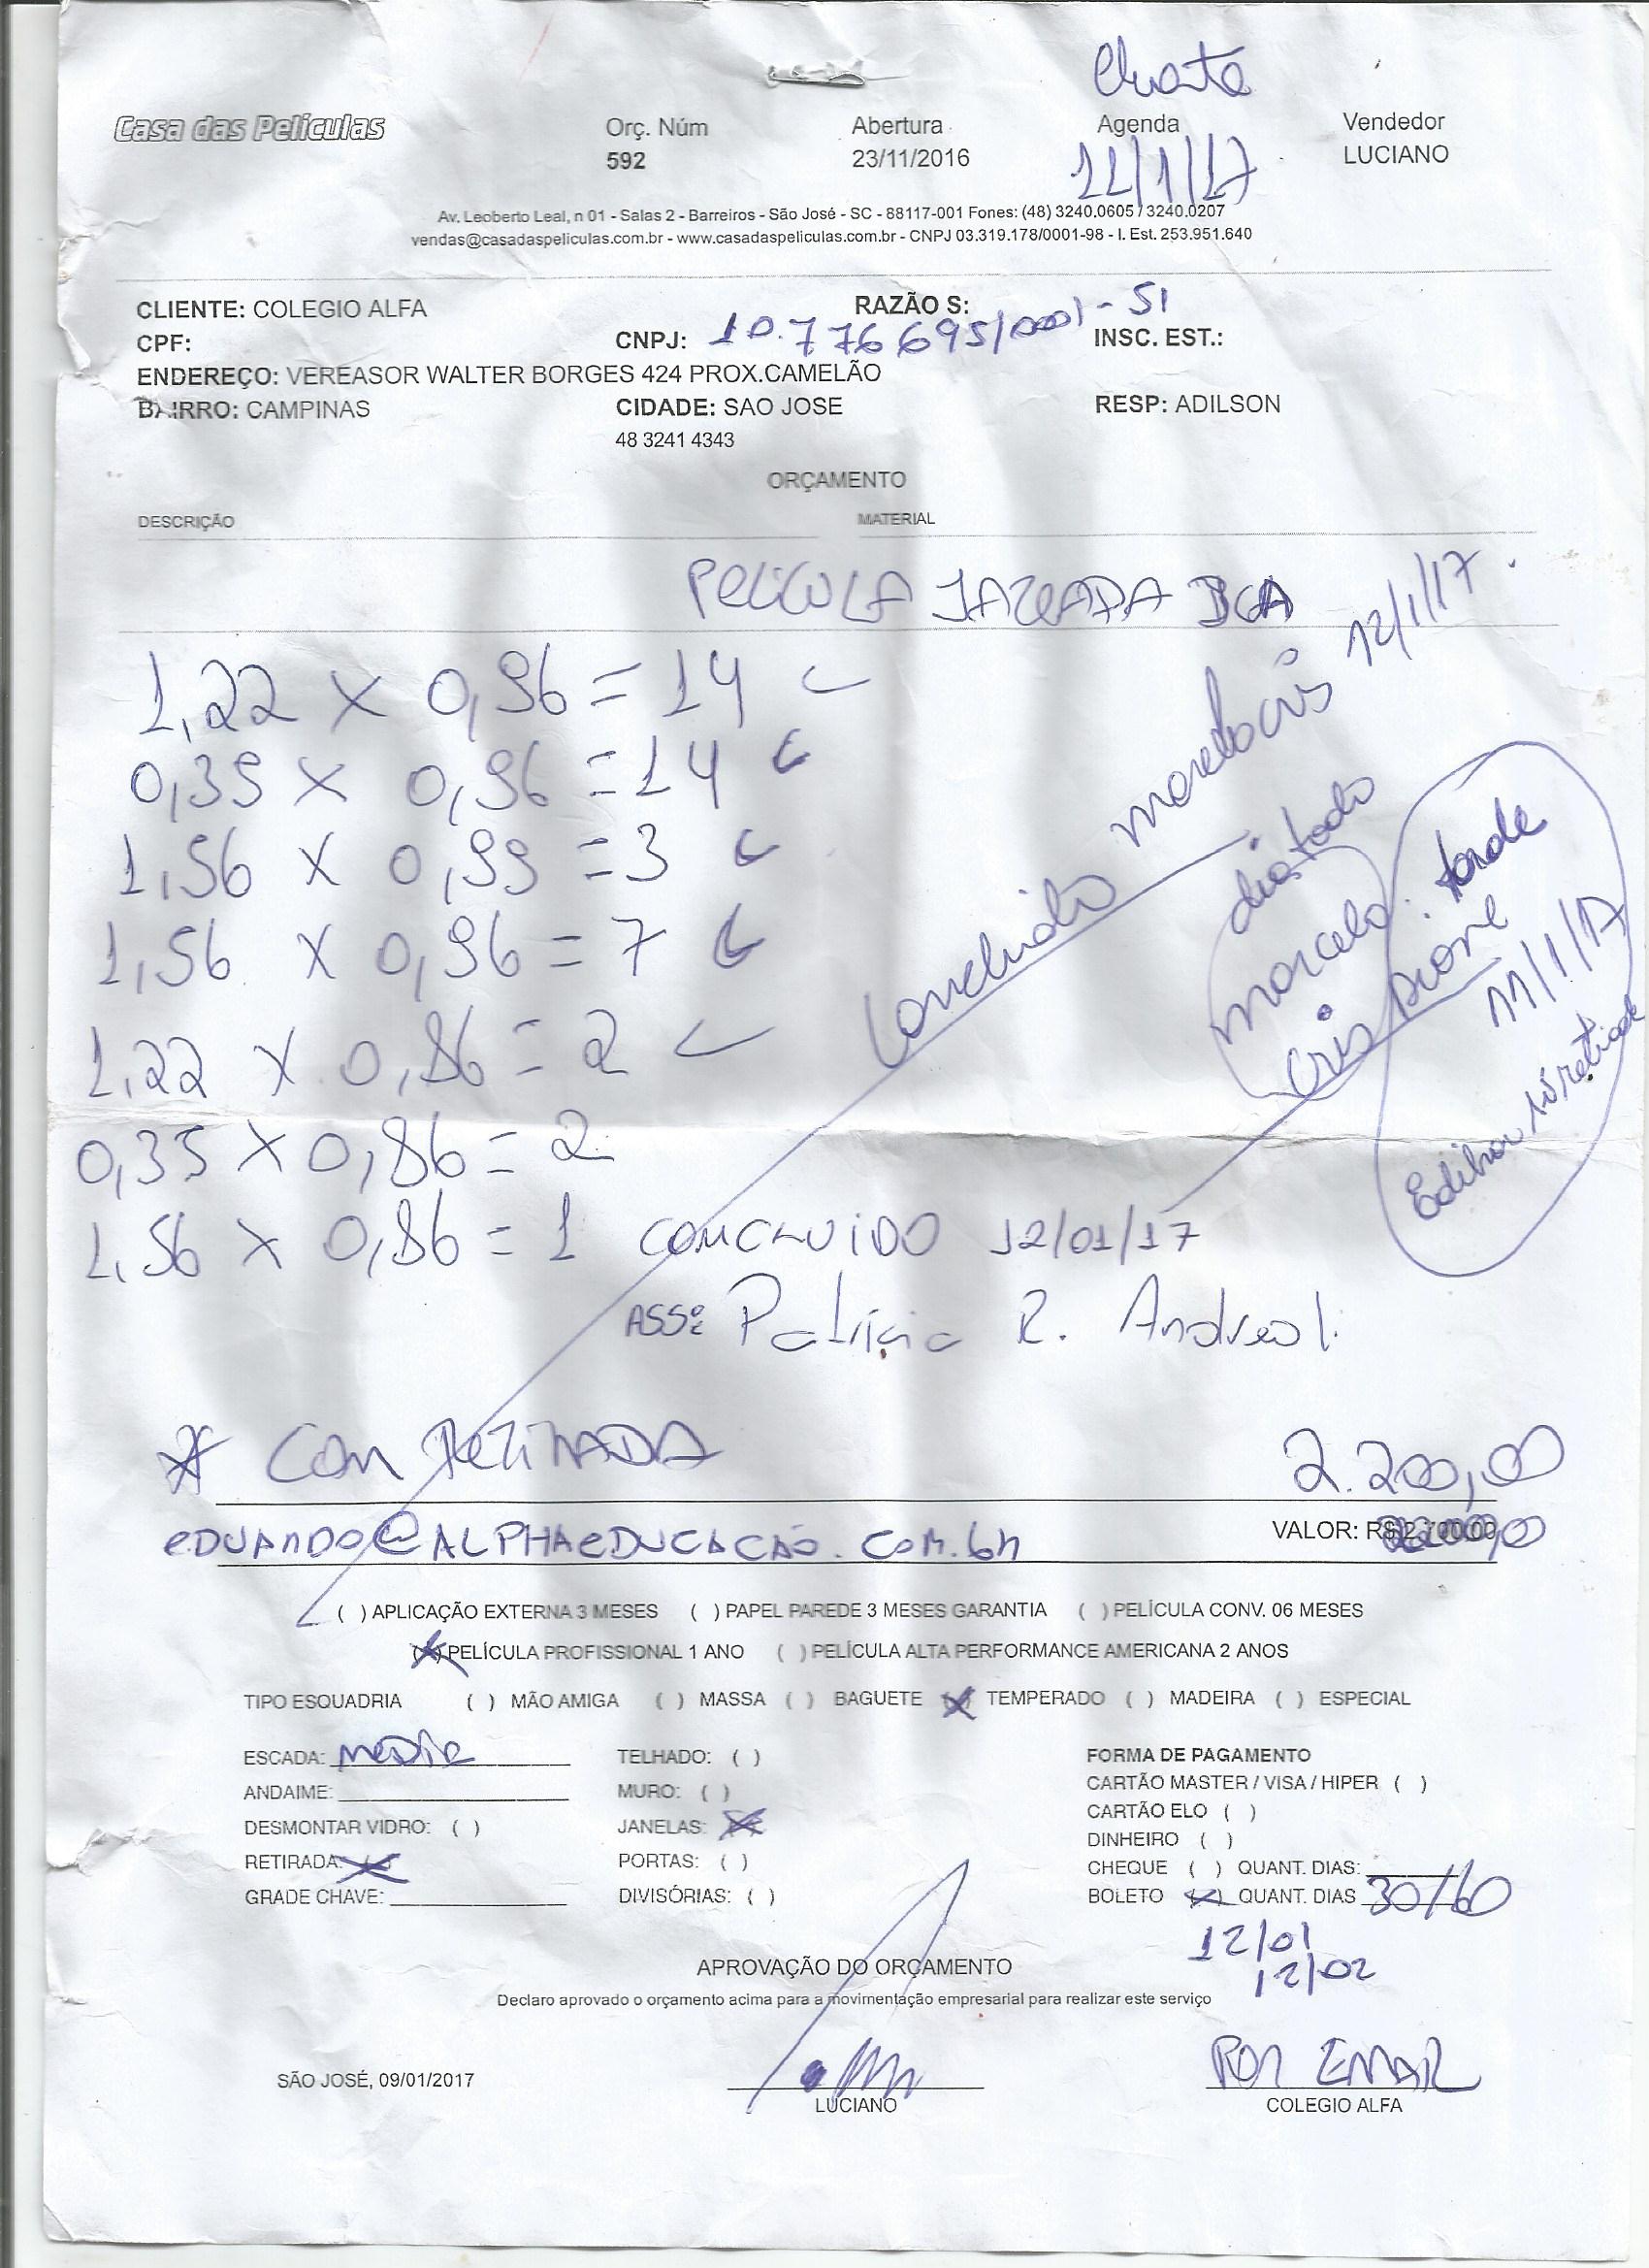 Casa das Películas
Orç. Núm
592
Abertura
23/11/2016
Agenda
11/1/17
Vendedor
LUCIANO
Av. Leoberto Leal, n 01 - Salas 2 - Barreiros - São José - SC - 88117-001 Fones: (48) 3240.0605 / 3240.0207
vendas@casadaspeliculas.com.br - www.casadaspeliculas.com.br - CNPJ 03.319.178/0001-98 - I. Est. 253.951.640
CLIENTE: COLEGIO ALFA
RAZÃO S:
CPF:
CNPJ: 10.776695/0001-51
INSC. EST.:
ENDEREÇO: VEREASOR WALTER BORGES 424 PROX.CAMELÃO
BAIRRO: CAMPINAS
CIDADE: SAO JOSE
RESP: ADILSON
48 3241 4343
ORÇAMENTO
DESCRIÇÃO
MATERIAL
PELICULA JATEADA BCA
1,22 X 0,96 = 14
0,35 X 0,96 = 14
1,56 X 0,99 = 3
1,56 X 0,96 = 7
1,22 X 0,86 = 2
0,35 X 0,86 = 2
1,56 X 0,86 = 1
Concluido
12/1/17
dia todo
Marcelo
Cris
tarde
11/1/17
CONCLUIDO 12/01/17
ASS: Patricia R. Andreoli
* COM RETIRADA
2.200,00
eDUARDO@ALPHAeDUCACAO.COM.br
VALOR: R$
( ) APLICAÇÃO EXTERNA 3 MESES ( ) PAPEL PAREDE 3 MESES GARANTIA ( ) PELÍCULA CONV. 06 MESES
(X) PELÍCULA PROFISSIONAL 1 ANO ( ) PELÍCULA ALTA PERFORMANCE AMERICANA 2 ANOS
TIPO ESQUADRIA ( ) MÃO AMIGA ( ) MASSA ( ) BAGUETE (X) TEMPERADO ( ) MADEIRA ( ) ESPECIAL
ESCADA: MEDIA
ANDAIME:
DESMONTAR VIDRO: ( )
RETIRADA: (X)
GRADE CHAVE:
TELHADO: ( )
MURO: ( )
JANELAS: (X)
PORTAS: ( )
DIVISÓRIAS: ( )
FORMA DE PAGAMENTO
CARTÃO MASTER / VISA / HIPER ( )
CARTÃO ELO ( )
DINHEIRO ( )
CHEQUE ( ) QUANT. DIAS:
BOLETO (X) QUANT. DIAS 30/60
12/01
12/02
APROVAÇÃO DO ORÇAMENTO
Declaro aprovado o orçamento acima para a movimentação empresarial para realizar este serviço
SÃO JOSÉ, 09/01/2017
LUCIANO
POR EMAIL
COLEGIO ALFA